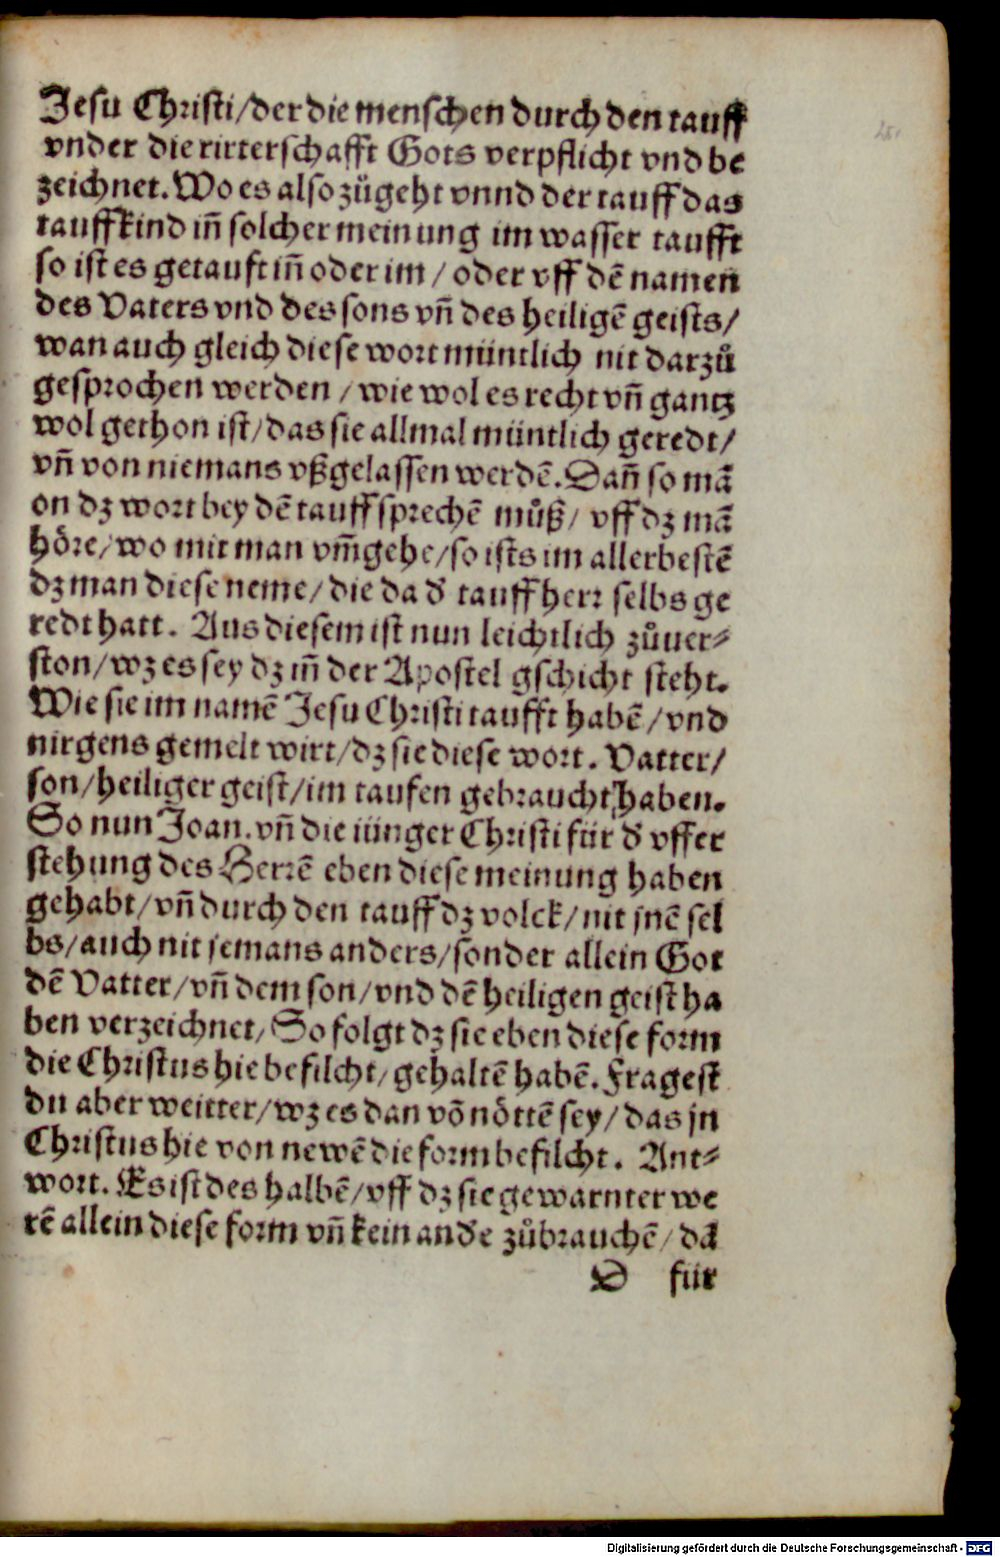 Jesu Christi/der die menschen durch den tauff
vnder die rirterschafft Gots verpflicht vnd be
zeichnet. Wo es also zůgeht vnnd der tauff das
tauffkind in̄ solcher meinung im wasser taufft
so ist es getauft in̄ oder im / oder vff dē namen
des Vaters vnd des sons vn̄ des heiligē geists/
wan auch gleich diese wort müntlich nit darzů
gesprochen werden / wie wol es recht vn̄ gantz
wol gethon ist/das sie allmal müntlich geredt/
vn̄ von niemans vßgelassen werdē. Dan̄ so mā
on dz wort bey dē tauff sprechē můß/ vff dz mā
höre/wo mit man vm̄gehe/so ists im allerbestē
dz man diese neme/die da d' tauff herr selbs ge
redt hatt. Aus diesem ist nun leichtlich zůuer⸗
ston/wz es sey dz in̄ der Apostel gschicht steht.
Wie sie im namē Jesu Christi taufft habē/vnd
nirgens gemelt wirt/dz sie diese wort. Vatter/
son/heiliger geist/im taufen gebraucht haben.
So nun Joan. vn̄ die iünger Christi für d' vffer
stehung des Herrē eben diese meinung haben
gehabt/vn̄ durch den tauff dz volck/nit jnē sel
bs/auch nit jemans anders/sonder allein Got
dē Vatter/vn̄ dem son/vnd dē heiligen geist ha
ben verzeichnet/ So folgt dz sie eben diese form
die Christus hie befilcht/gehaltē habē. Fragest
du aber weitter/wz es dan vō nöttē sey/das jn
Christus hie von newē die form befilcht. Ant⸗
wort. Es ist des halbē/vff dz sie gewarnter we
rē allein diese form vn̄ kein and'e zůbrauchē/dā
D für
Digitalisierung gefördert durch die Deutsche Forschungsgemeinschaft - DFG